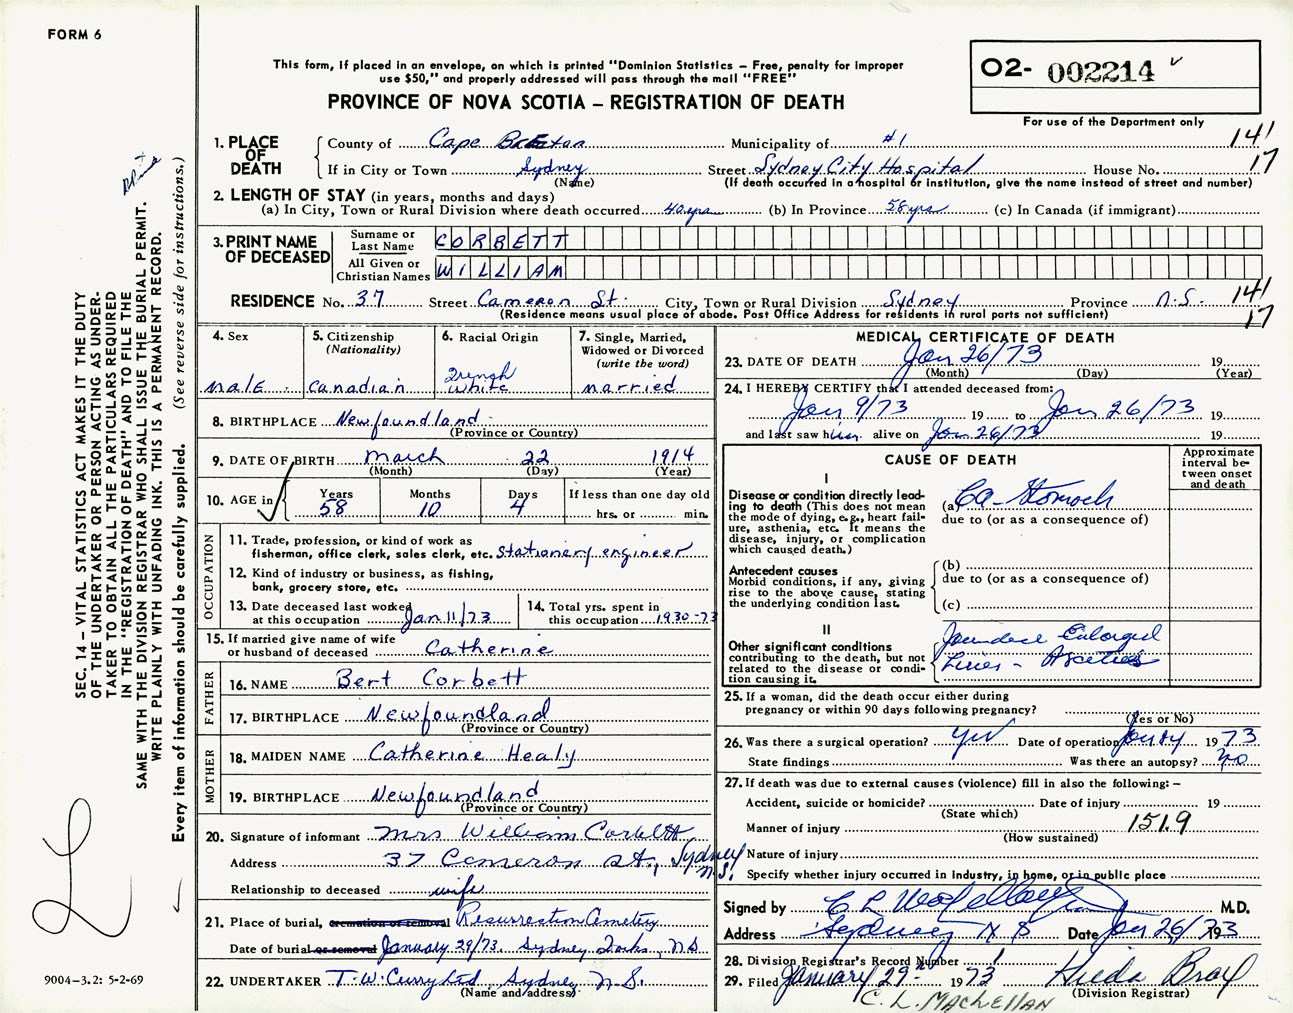 FORM 6
This form, if placed in an envelope, on which is printed "Dominion Statistics – Free, penalty for improper
use $50," and properly addressed will pass through the mail "FREE"
PROVINCE OF NOVA SCOTIA – REGISTRATION OF DEATH
O2- 002214
For use of the Department only
1. PLACE OF DEATH
County of Cape Breton Municipality of #1 141
If in City or Town Sydney (Name) Street Sydney City Hospital House No. 17
(If death occurred in a hospital or institution, give the name instead of street and number)
2. LENGTH OF STAY (in years, months and days)
(a) In City, Town or Rural Division where death occurred 40 yrs (b) In Province 58 yrs (c) In Canada (if immigrant)
3. PRINT NAME OF DECEASED
Surname or Last Name CORBETT
All Given or Christian Names WILLIAM
RESIDENCE No. 37 Street Cameron St. City, Town or Rural Division Sydney Province N.S. 141
(Residence means usual place of abode. Post Office Address for residents in rural parts not sufficient) 17
4. Sex male
5. Citizenship (Nationality) Canadian
6. Racial Origin French White
7. Single, Married, Widowed or Divorced (write the word) married
8. BIRTHPLACE Newfoundland
(Province or Country)
9. DATE OF BIRTH March 22 1914
(Month) (Day) (Year)
10. AGE in Years 58 Months 10 Days 4 If less than one day old
hrs. or min.
OCCUPATION
11. Trade, profession, or kind of work as
fisherman, office clerk, sales clerk, etc. Stationery engineer
12. Kind of industry or business, as fishing,
bank, grocery store, etc.
13. Date deceased last worked at this occupation Jan 11/73
14. Total yrs. spent in this occupation 1930-73
15. If married give name of wife
or husband of deceased Catherine
FATHER
16. NAME Bert Corbett
17. BIRTHPLACE Newfoundland
(Province or Country)
MOTHER
18. MAIDEN NAME Catherine Healy
19. BIRTHPLACE Newfoundland
(Province or Country)
20. Signature of informant Mrs William Corbett
Address 37 Cameron St., Sydney N.S.
Relationship to deceased wife
21. Place of burial, cremation or removal Resurrection Cemetery
Date of burial or removal January 29/73 Sydney Forks, N.S.
22. UNDERTAKER T.W. Curry Ltd, Sydney N.S.
(Name and address)
MEDICAL CERTIFICATE OF DEATH
23. DATE OF DEATH Jan 26/73 19
(Month) (Day) (Year)
24. I HEREBY CERTIFY that I attended deceased from:
Jan 9/73 19 to Jan 26/73 19
and last saw him alive on Jan 26/73 19
CAUSE OF DEATH
Approximate interval between onset and death
I
Disease or condition directly leading to death (This does not mean
the mode of dying, e.g., heart failure, asthenia, etc. It means the
disease, injury, or complication which caused death.)
(a) Ca-Stomach
due to (or as a consequence of)
Antecedent causes
Morbid conditions, if any, giving
rise to the above cause, stating
the underlying condition last.
(b)
due to (or as a consequence of)
(c)
II
Other significant conditions
contributing to the death, but not
related to the disease or condition causing it.
Jaundice Enlarged
Liver - Ascites
25. If a woman, did the death occur either during
pregnancy or within 90 days following pregnancy?
(Yes or No)
26. Was there a surgical operation? yes Date of operation 1973
State findings Was there an autopsy? no
27. If death was due to external causes (violence) fill in also the following: –
Accident, suicide or homicide? Date of injury 19
(State which)
Manner of injury 151.9
(How sustained)
Nature of injury
Specify whether injury occurred in industry, in home, or in public place
Signed by C L MacLellan M.D.
Address Sydney N S Date Jan 26/73 19
28. Division Registrar's Record Number 1
29. Filed January 29th 1973 Hilda Bray
(Division Registrar)
C. L. MACLELLAN
SEC. 14 – VITAL STATISTICS ACT MAKES IT THE DUTY
OF THE UNDERTAKER OR PERSON ACTING AS UNDER-
TAKER TO OBTAIN ALL THE PARTICULARS REQUIRED
IN THE "REGISTRATION OF DEATH" AND TO FILE THE
SAME WITH THE DIVISION REGISTRAR WHO SHALL ISSUE THE BURIAL PERMIT.
WRITE PLAINLY WITH UNFADING INK. THIS IS A PERMANENT RECORD.
Every item of information should be carefully supplied. (See reverse side for instructions.)
9004-3.2: 5-2-69